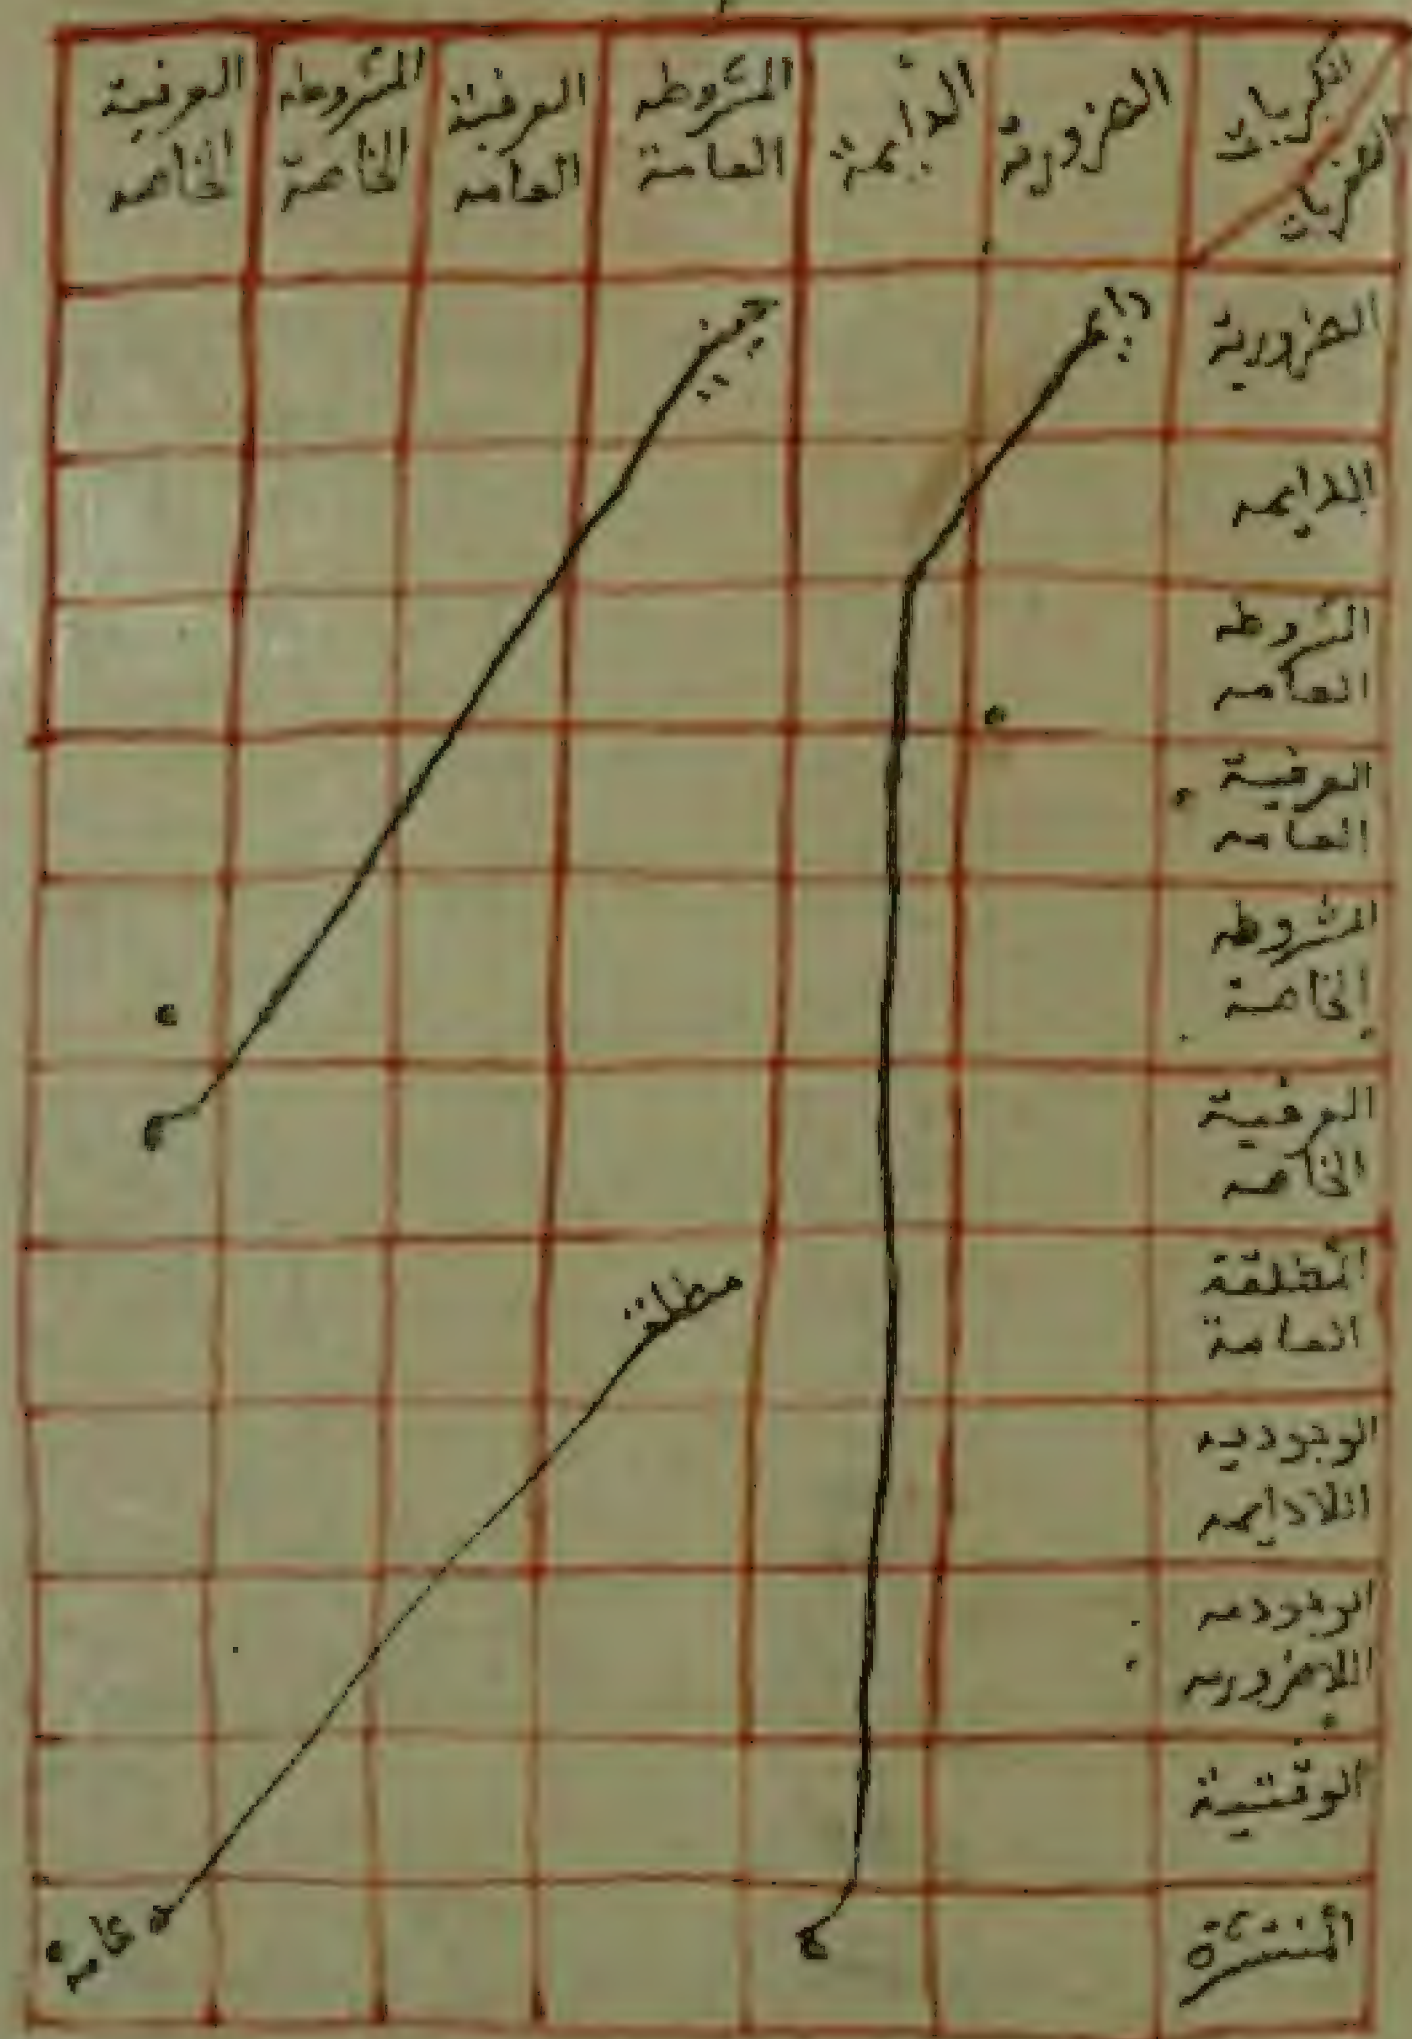 الكبريات
الصغريات
الضرورية
الدايمة
المشروطه
العامة
العرفية
العامه
المشروطه
الخاصة
العرفية
الخاصه
الضرورية
الدايمه
المشروطه
العامه
العرفية
العامه
المشروطه
الخاصة
العرفية
الخاصه
المطلقة
العامة
الوجوديه
اللادايمه
الوجوديه
اللاضروريه
الوقتية
المنتشرة
حينية
مطلقة
عامة